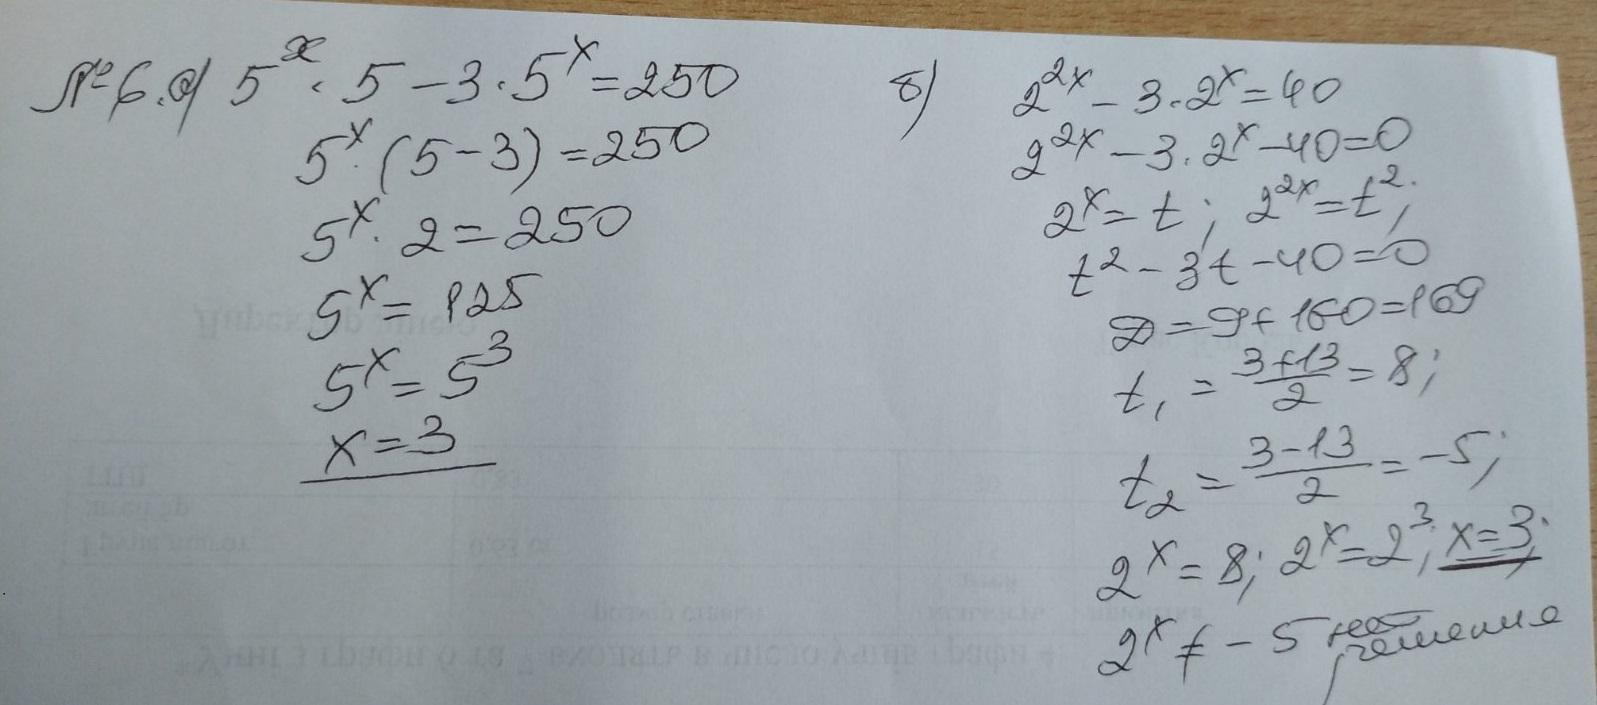 №6.а) 5^x · 5 – 3 · 5^x = 250
5^x · (5 – 3) = 250
5^x · 2 = 250
5^x = 125
5^x = 5^3
x = 3
б) 2^2x – 3 · 2^x = 40
2^2x – 3 · 2^x – 40 = 0
2^x = t; 2^2x = t^2;
t^2 – 3t – 40 = 0
D = 9 + 160 = 169
t₁ = (3+13)/2 = 8;
t₂ = (3–13)/2 = –5;
2^x = 8; 2^x = 2^3; x = 3;
2^x ≠ – 5 нет
решения